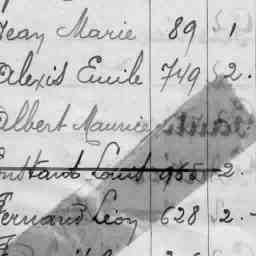 Jean Marie 89 1
Alexis Emile 749 2.
Albert Maurice
Gustave Louis 955 2.
Fernand Léon 628 2.-